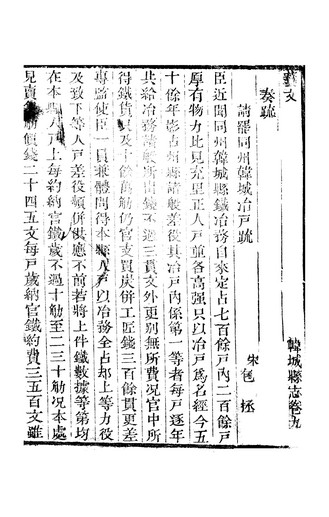 韓城縣志卷九
藝文
奏疏
請罷同州韓城冶戶疏
宋 包 拯
臣近聞同州韓城縣鐵冶務自來定占七百餘戶內二百餘戶
厚有物力比見充里正人戶並各高強只以冶戶為名經今五
十餘年影占州縣諸般差役其冶戶內係第一等者每戶逐年
共給冶務諸般所出錢不過三貫文外更別無所費況官中所
得鐵貨里及十餘萬觔仍官支買炭併工匠錢三百餘貫更差
專監使臣一員兼體問得本縣人戶以冶務全占却上等力役
及致下等人戶差役頻併供應不前若將上件鐵數據等第均
在本縣人戶上每約納官鐵歲不過十觔至二三十觔況本處
見賣每觔價錢二十四五文每戶歲納官鐵約費三五百文雖